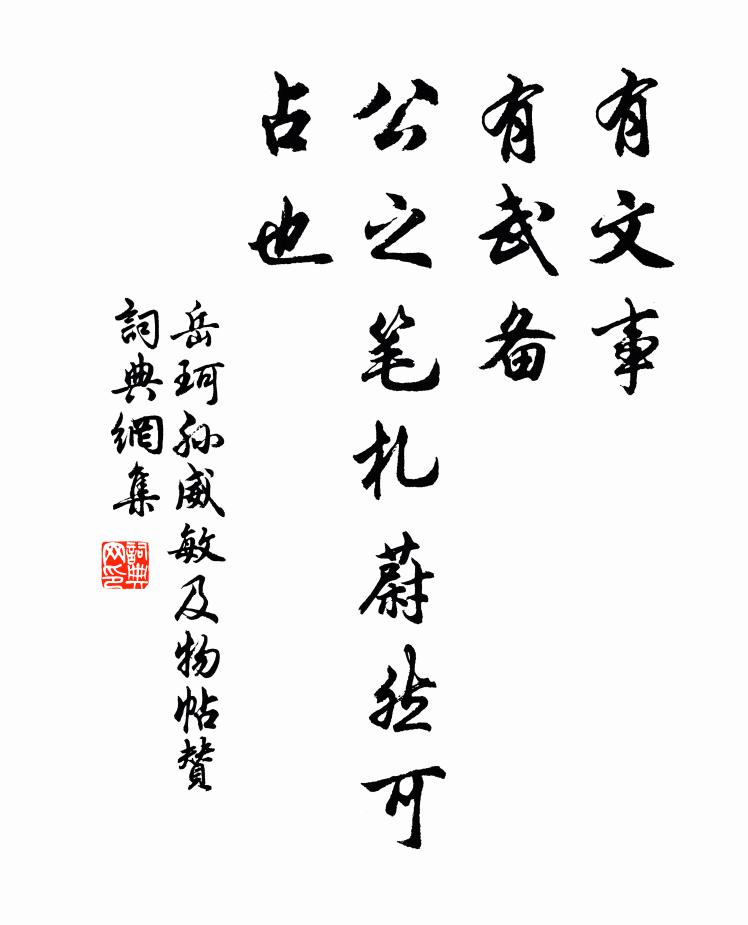 有文事
有武备
公之笔札蔚然可
占也
岳珂孙威敏及物帖赞
詞典網集
詞典
网印